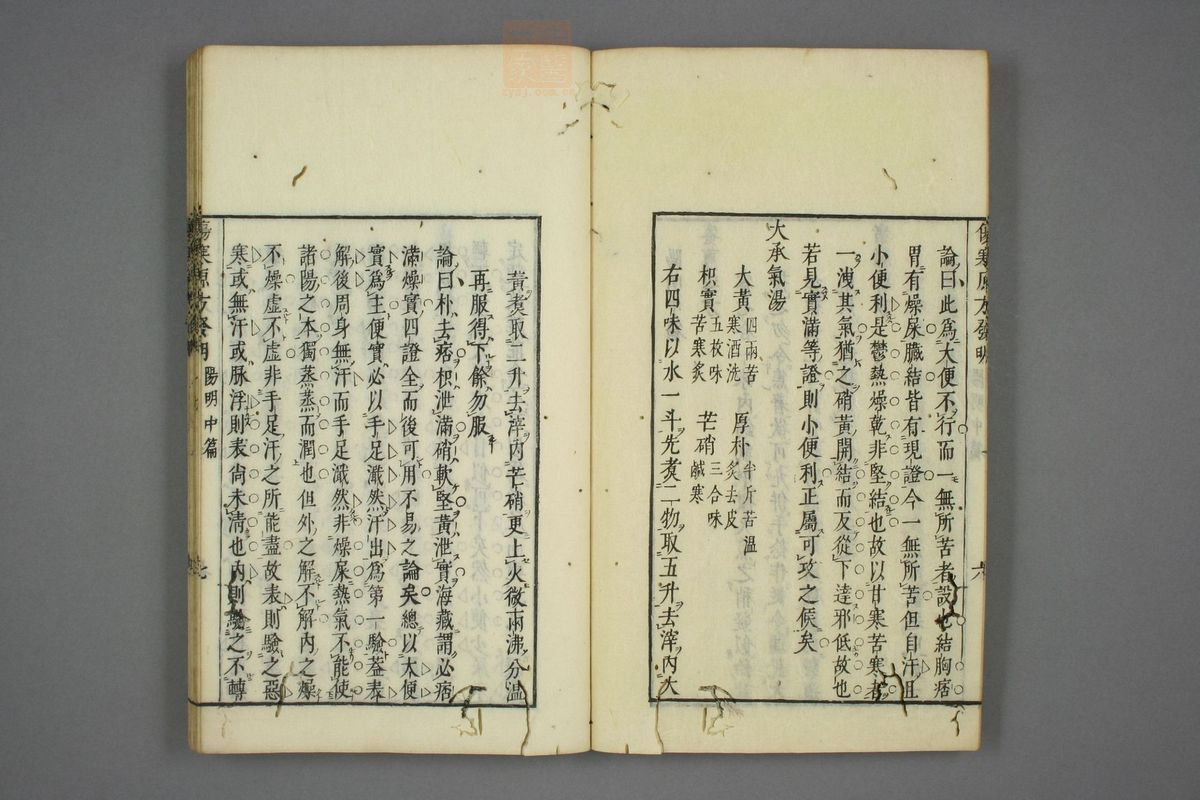 論曰此爲大便不行而一無所苦者設也結胸痞
胃有燥屎臓結皆有現證今一無所苦但自汗且
小便利是鬱熱燥乾非堅結也故以甘寒苦寒者
一洩其氣猶之硝黃開結而反從下達邪低故也
若見實滿等證則小便利正屬可攻之候矣
大承氣湯
大黃四兩苦寒酒洗 厚朴半斤苦溫炙去皮
枳實五枚味苦寒炙 芒硝三合味鹹寒
右四味以水一斗先煮二物取五升去滓內大
傷寒原方發明 六
黃煮取二升去滓內芒硝更上火微兩沸分溫
再服得下餘勿服
論曰朴去痞枳泄滿硝軟堅黃泄實海藏謂必痞
滿燥實四證全而後可用不易之論矣總以大便
實爲主便實必以手足濈然汗出爲第一驗蓋表
解後周身無汗而手足濈然非燥屎熱氣不能使
諸陽之本獨蒸蒸而潤也但外之解不解內之燥
不燥虛不虛非手足汗之所能盡故表則驗之惡
寒或無汗或脉浮則表尚未清也內則驗之不轉
傷寒原方發明 陽明中篇 七